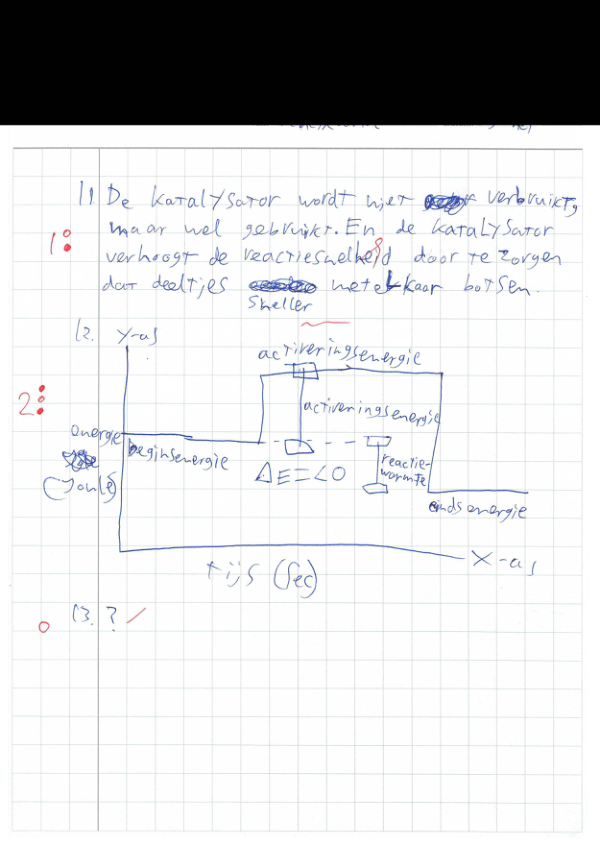 11. De katalysator wordt niet verbruikt,
maar wel gebruikt. En de katalysator
verhoogt de reactiesnelheid door te zorgen
dat deeltjes sneller met elkaar botsen.
12. Y-as
activeringsenergie
activeringsenergie
energie
(Joule)
beginsenergie
ΔE=<0
reactie-
warmte
eindsenergie
X-as
(sec)
13. ?